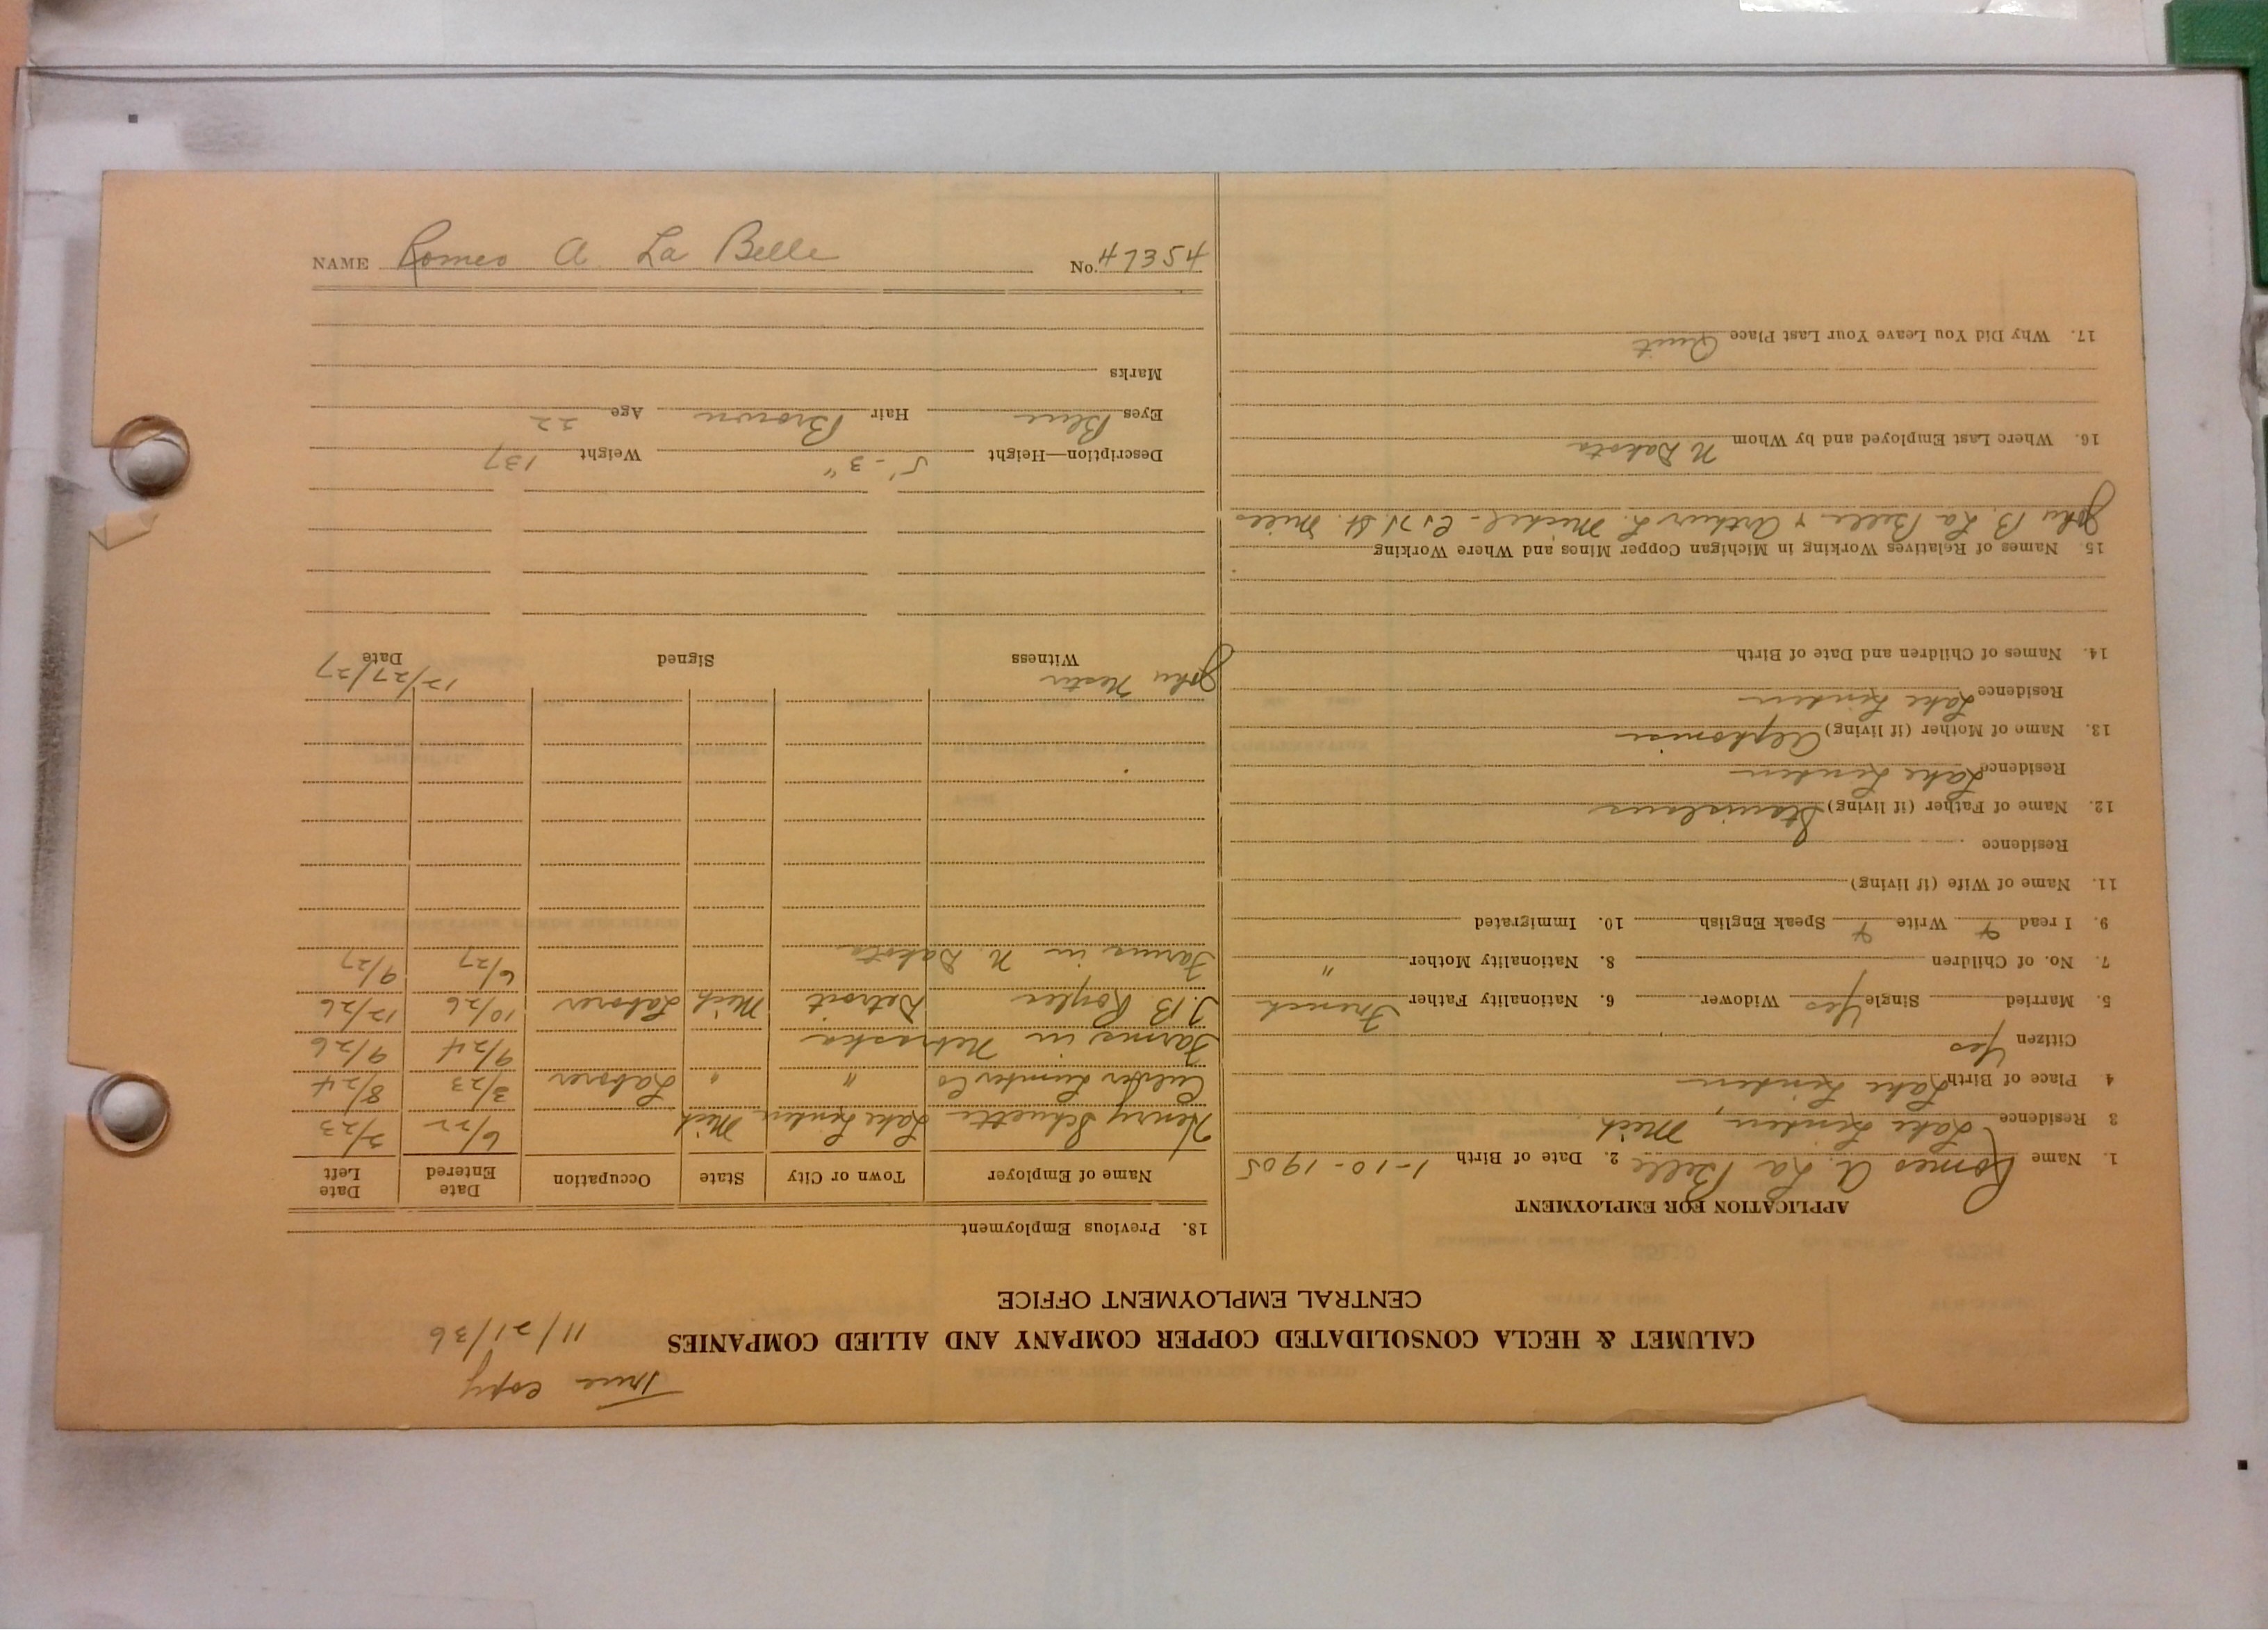 True copy
11/21/36
CALUMET & HECLA CONSOLIDATED COPPER COMPANY AND ALLIED COMPANIES
CENTRAL EMPLOYMENT OFFICE
APPLICATION FOR EMPLOYMENT
1. Name Romeo A. La Belle 2. Date of Birth 1-10-1905
3 Residence Lake Linden, Mich
4 Place of Birth Lake Linden
Citizen Yes
5. Married Single Yes Widower 6. Nationality Father French
7. No. of Children 8. Nationality Mother "
9. I read Y Write Y Speak English 10. Immigrated
11. Name of Wife (if living)
Residence
12. Name of Father (if living) Stanislaus
Residence Lake Linden
13. Name of Mother (if living) Alphonsie
Residence Lake Linden
14. Names of Children and Date of Birth
15. Names of Relatives Working in Michigan Copper Mines and Where Working
John B. La Belle & Arthur L. Michel - C&H St. Mills
16. Where Last Employed and by Whom N Dakota
17. Why Did You Leave Your Last Place Quit
18. Previous Employment
Name of Employer Town or City State Occupation Date Entered Date Left
Henry Schuette Lake Linden Mich 6/22 3/23
Lumber Co " " Laborer 3/23 8/24
Farms in Nebraska 9/24 9/26
J.B. Detroit Mich Laborer 10/26 12/26
Farms in N. Dakota 6/27 9/27
John Nester 12/27/27
Witness Signed Date
Description—Height 5'-3" Weight 137
Eyes Blue Hair Brown Age 22
Marks
NAME Romeo A La Belle No. 47354